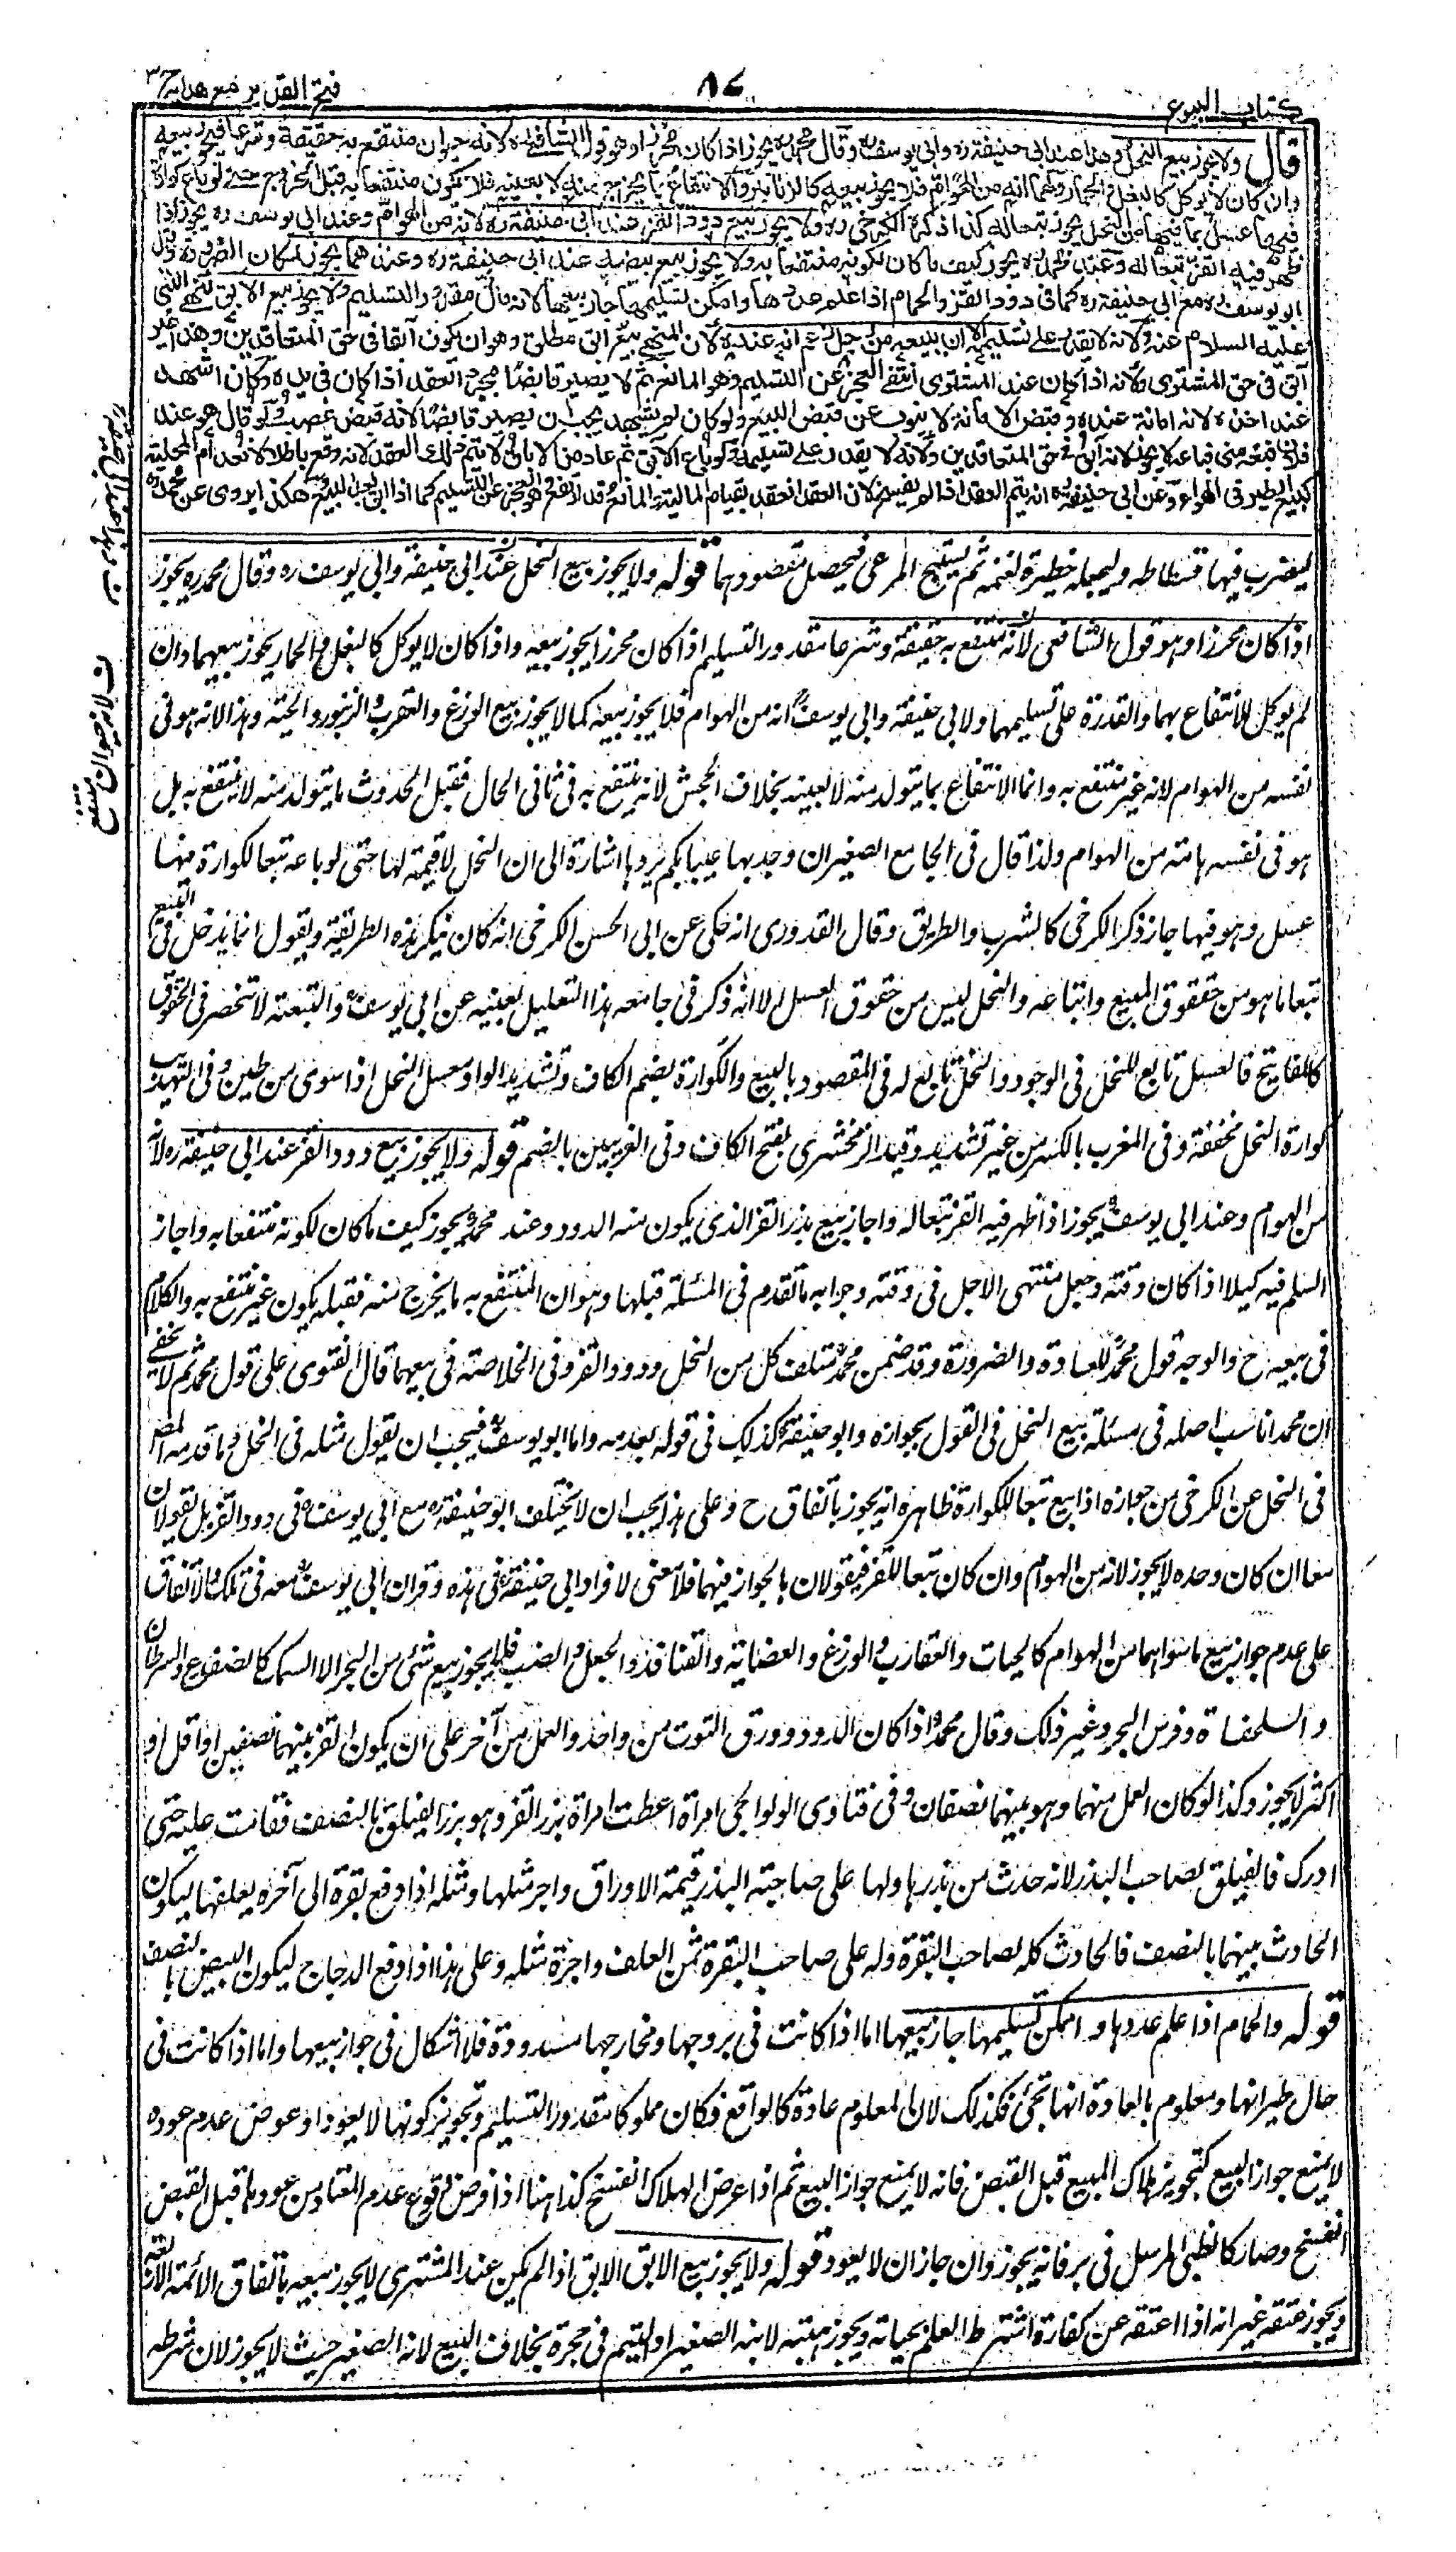 كتاب البيوع
٨٧
فتح القدير مع هدايه ج٣
قال ولا يجوز بيع النحل وهذا عند ابى حنيفة ره وابى يوسف ره وقال محمد ره يجوز اذا كان محرزا وهو قول الشافعى ره لانه حيوان منتفع به حقيقة وشرعا فيجوز بيعه
وان كان لا يوكل كالبغل والحمار ولهما انه من الهوام فلا يجوز بيعه كالزنابير والانتفاع بما يخرج منه لا بعينه فلا يكون منتفعا به قبل الخروج حتى لو باع كوارة
فيها عسل بما فيها من النحل يجوز تبعا له كذا ذكره الكرخى ره ولا يجوز بيع دود القز عند ابى حنيفة ره لانه من الهوام وعند ابى يوسف ره يجوز اذا
ظهر فيه القز تبعا له وعند محمد ره يجوز كيف ما كان لكونه منتفعا به ولا يجوز بيع بيضه عند ابى حنيفة ره وعندهما يجوز لمكان الضرورة وقيل
ابو يوسف ره مع ابى حنيفة ره كما فى دود القز والحمام اذا علم عددها وامكن تسليمها جاز بيعها لانه مال مقدور التسليم ولا يجوز بيع الابق لنهى النبى
عليه السلام عنه ولانه لا يقدر على تسليمه الا ان يبيعه من رجل زعم انه عنده لان المنهى بيع آبق مطلق وهو ان يكون آبقا فى حق المتعاقدين وهذا غير
آبق فى حق المشترى ولانه اذا كان عند المشترى انتفى العجز عن التسليم وهو المانع ثم لا يصير قابضا بمجرد العقد اذا كان فى يده وكان اشهد
عند اخذه لانه امانة عنده وقبض الامانة لا ينوب عن قبض البيع ولو كان لم يشهد يجب ان يصير قابضا لانه قبض غصب ولو قال هو عند
فلان فبعه منى فباعه لا يجوز لانه آبق فى حق المتعاقدين ولانه لا يقدر على تسليمه ولو باع الآبق ثم عاد من الاباق لا يتم ذلك العقد لانه وقع باطلا لانعدام المحلية
كبيع الطير فى الهواء وعن ابى حنيفة ره انه يتم العقد اذا لم يفسخ لان العقد انعقد بقيام المالية والمانع قد ارتفع وهو العجز عن التسليم كما اذا ابق بعد البيع وهكذا يروى عن محمد ره
ليضرب فيها فسطاطه وليجعله حظيرة لغنمه ثم يستبيح المرعى فيحصل مقصودهما قوله ولا يجوز بيع النحل عند ابى حنيفة وابى يوسف ره وقال محمد ره يجوز
اذا كان محرزا وهو قول الشافعى لانه منتفع به حقيقة وشرعا مقدور التسليم اذا كان محرزا يجوز بيعه واذا كان لا يوكل كالبغل والحمار يجوز بيعهما وان
لم يوكل للانتفاع بهما والقدرة على تسليمهما ولابى حنيفة وابى يوسف انه من الهوام فلا يجوز بيعه كما لا يجوز بيع الوزغ والعقرب والزنبور والحية وهذا لانه هو فى
نفسه من الهوام لانه غير منتفع به وانما الانتفاع بما يتولد منه لا بعينه بخلاف الجحش لانه ينتفع به فى ثانى الحال فقبل الحدوث ما يتولد منه لا ينتفع به بل
هو فى نفسه هامة من الهوام ولذا قال فى الجامع الصغير ان وجد بها عيبا لم يردها اشارة الى ان النحل لا قيمة لها حتى لو باعه تبعا لكوارة فيها
عسل وهو فيها جاز ذكر الكرخى كالشرب والطريق وقال القدورى انه حكى عن ابى الحسن الكرخى انه كان ينكر هذه الطريقة ويقول انما يدخل فى البيع
تبعا ما هو من حقوق المبيع واتباعه والنحل ليس من حقوق العسل الا انه ذكر فى جامعه هذا التعليل بعينه عن ابى يوسف والتبعية لا تنحصر فى الحقوق
كالمفاتيح فالعسل تابع للنحل فى الوجود والنحل تابع له فى المقصود بالبيع والكوارة بضم الكاف وتشديد الواو معسل النحل اذا سوى من طين وفى التهذيب
كوارة النحل مخففة وفى المغرب بالكسر من غير تشديد وقيد الزمخشرى بفتح الكاف وفى الغريبين بالضم قوله ولا يجوز بيع دود القز عند ابى حنيفة ره لانه
من الهوام وعند ابى يوسف يجوز اذا ظهر فيه القز تبعا له واجاز بيع بذر القز الذى يكون منه الدود وعند محمد يجوز كيف ما كان لكونه منتفعا به واجاز
السلم فيه كيلا اذا كان وقته وجعل منتهى الاجل فى وقته وجوابه ما تقدم فى المسئلة قبلها وهو ان المنتفع به ما يخرج منه فقبله يكون غير منتفع به والكلام
فى بيعه ح والوجه قول محمد للعادة والضرورة وقد ضمن محمد متلف كل من النحل ودود القز وفى الخلاصة فى بيعهما قال الفتوى على قول محمد ثم لا يخفى
ان محمدا ناسب اصله فى مسئلة بيع النحل فى القول بجوازه وابو حنيفة كذلك فى قوله بعدمه واما ابو يوسف فيجب ان يقول مثله فى النحل وما قدمه المص
فى النحل عن الكرخى من جوازه اذا بيع تبعا للكوارة ظاهره انه يجوز باتفاق ح وعلى هذا يجب ان لا يختلف ابو حنيفة ره مع ابى يوسف ره فى دود القز بل يقولان
معا ان كان وحده لا يجوز لانه من الهوام وان كان تبعا للقز فيقولان بالجواز فيهما فلا معنى لافراد ابى حنيفة فى هذه وقران ابى يوسف معه فى تلك والاتفاق
على عدم جواز بيع ما سواهما من الهوام كالحيات والعقارب والوزغ والعضاية والقنافذ والجعل والضب ولا يجوز بيع شئ من البحر الا السمك كالضفدع والسرطان
والسلحفاة وفرس البحر وغير ذلك وقال محمد اذا كان الدود وورق التوت من واحد والعمل من آخر على ان يكون القز بينهما نصفين او اقل او
اكثر لا يجوز وكذا لو كان العمل منهما وهو بينهما نصفان وفى فتاوى الولوالجى امرأة اعطت امرأة بزر القز وهو بزر الفيلق بالنصف فقامت عليه حتى
ادرك فالفيلق لصاحب البذر لانه حدث من بذرها ولها على صاحبة البذر قيمة الاوراق واجر مثلها ومثله اذا دفع بقرة الى آخره يعلفها ليكون
الحادث بينهما بالنصف فالحادث كله لصاحب البقرة وله على صاحب البقرة ثمن العلف واجرة مثله وعلى هذا اذا دفع الدجاج ليكون البيض بالنصف
قوله والحمام اذا علم عددها وامكن تسليمها جاز بيعها اما اذا كانت فى بروجها ومخارجها مسدودة فلا اشكال فى جواز بيعها واما اذا كانت فى
حال طيرانها ومعلوم بالعادة انها تجئ فكذلك لان المعلوم عادة كالواقع فكان مملوكا مقدور التسليم وتجويز كونها لا يعود او عروض عدم عوده
لا يمنع جواز البيع كتجويز هلاك المبيع قبل القبض فانه لا يمنع جواز البيع ثم اذا عرض الهلاك انفسخ كذا هنا اذا فرض وقوع عدم المعتاد من عودها قبل القبض
انفسخ وصار كالظبى المرسل فى بر فانه يجوز وان جاز ان لا يعود قوله ولا يجوز بيع الابق الابق اذا لم يكن عند المشترى لا يجوز بيعه باتفاق الائمة الاربعة
ويجوز عتقه غير انه اذا اعتقه عن كفارة اشترط العلم بحياته ويجوز هبته لابنه الصغير او اليتيم فى حجره بخلاف البيع لابنه الصغير حيث لا يجوز لان شرطه